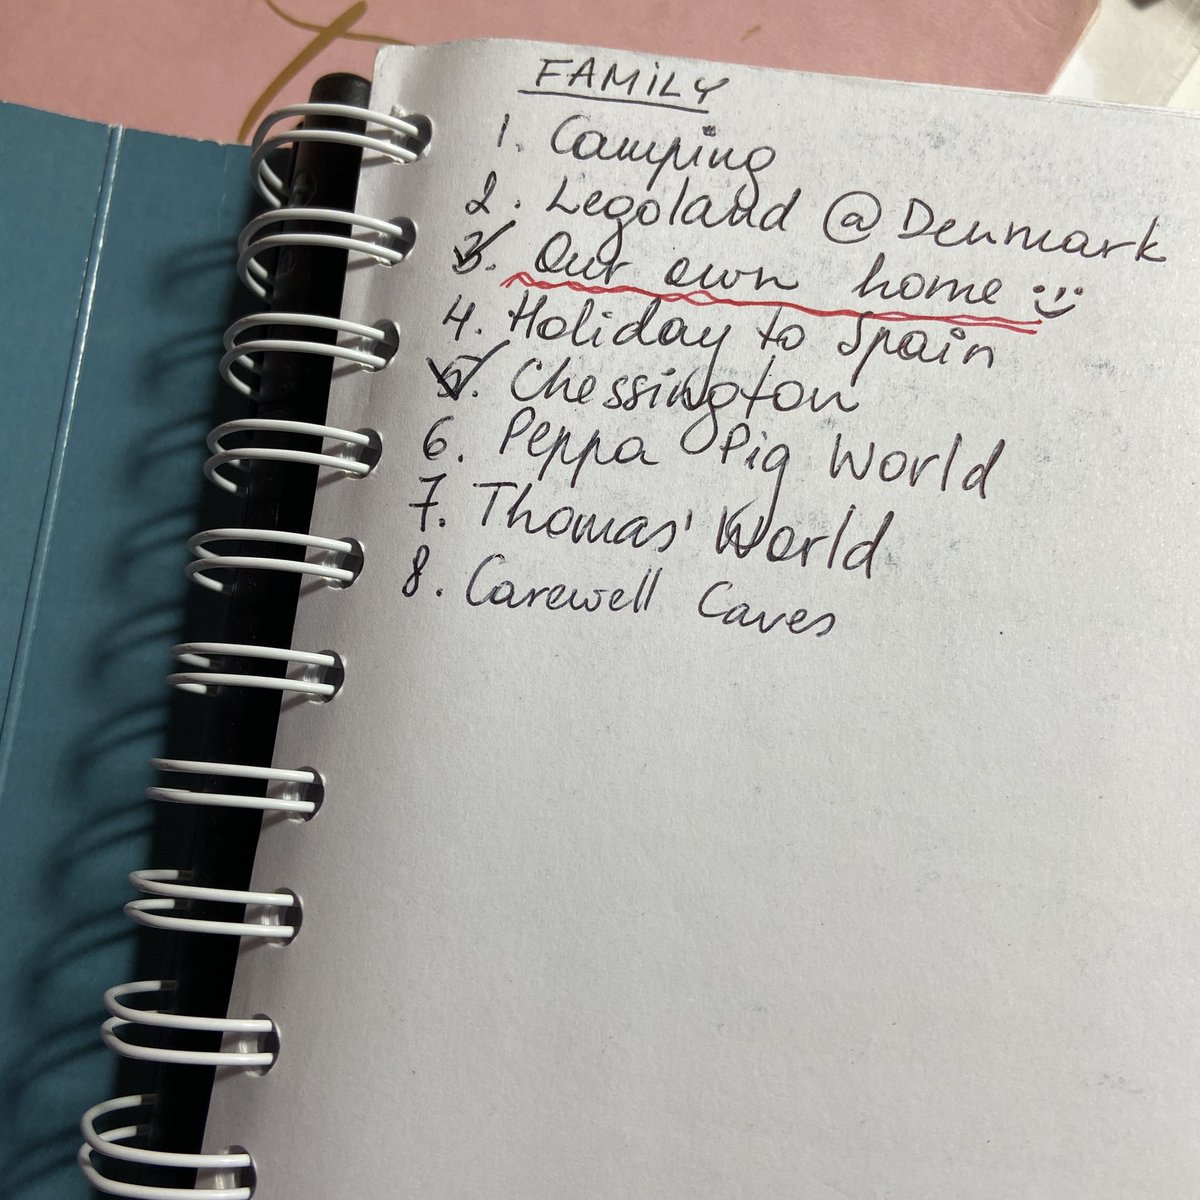 FAMILY
1. Camping
2. Legoland @ Denmark
3. Our own home
4. Holiday to Spain
5. Chessington
6. Peppa Pig World
7. Thomas' World
8. Carewell Caves